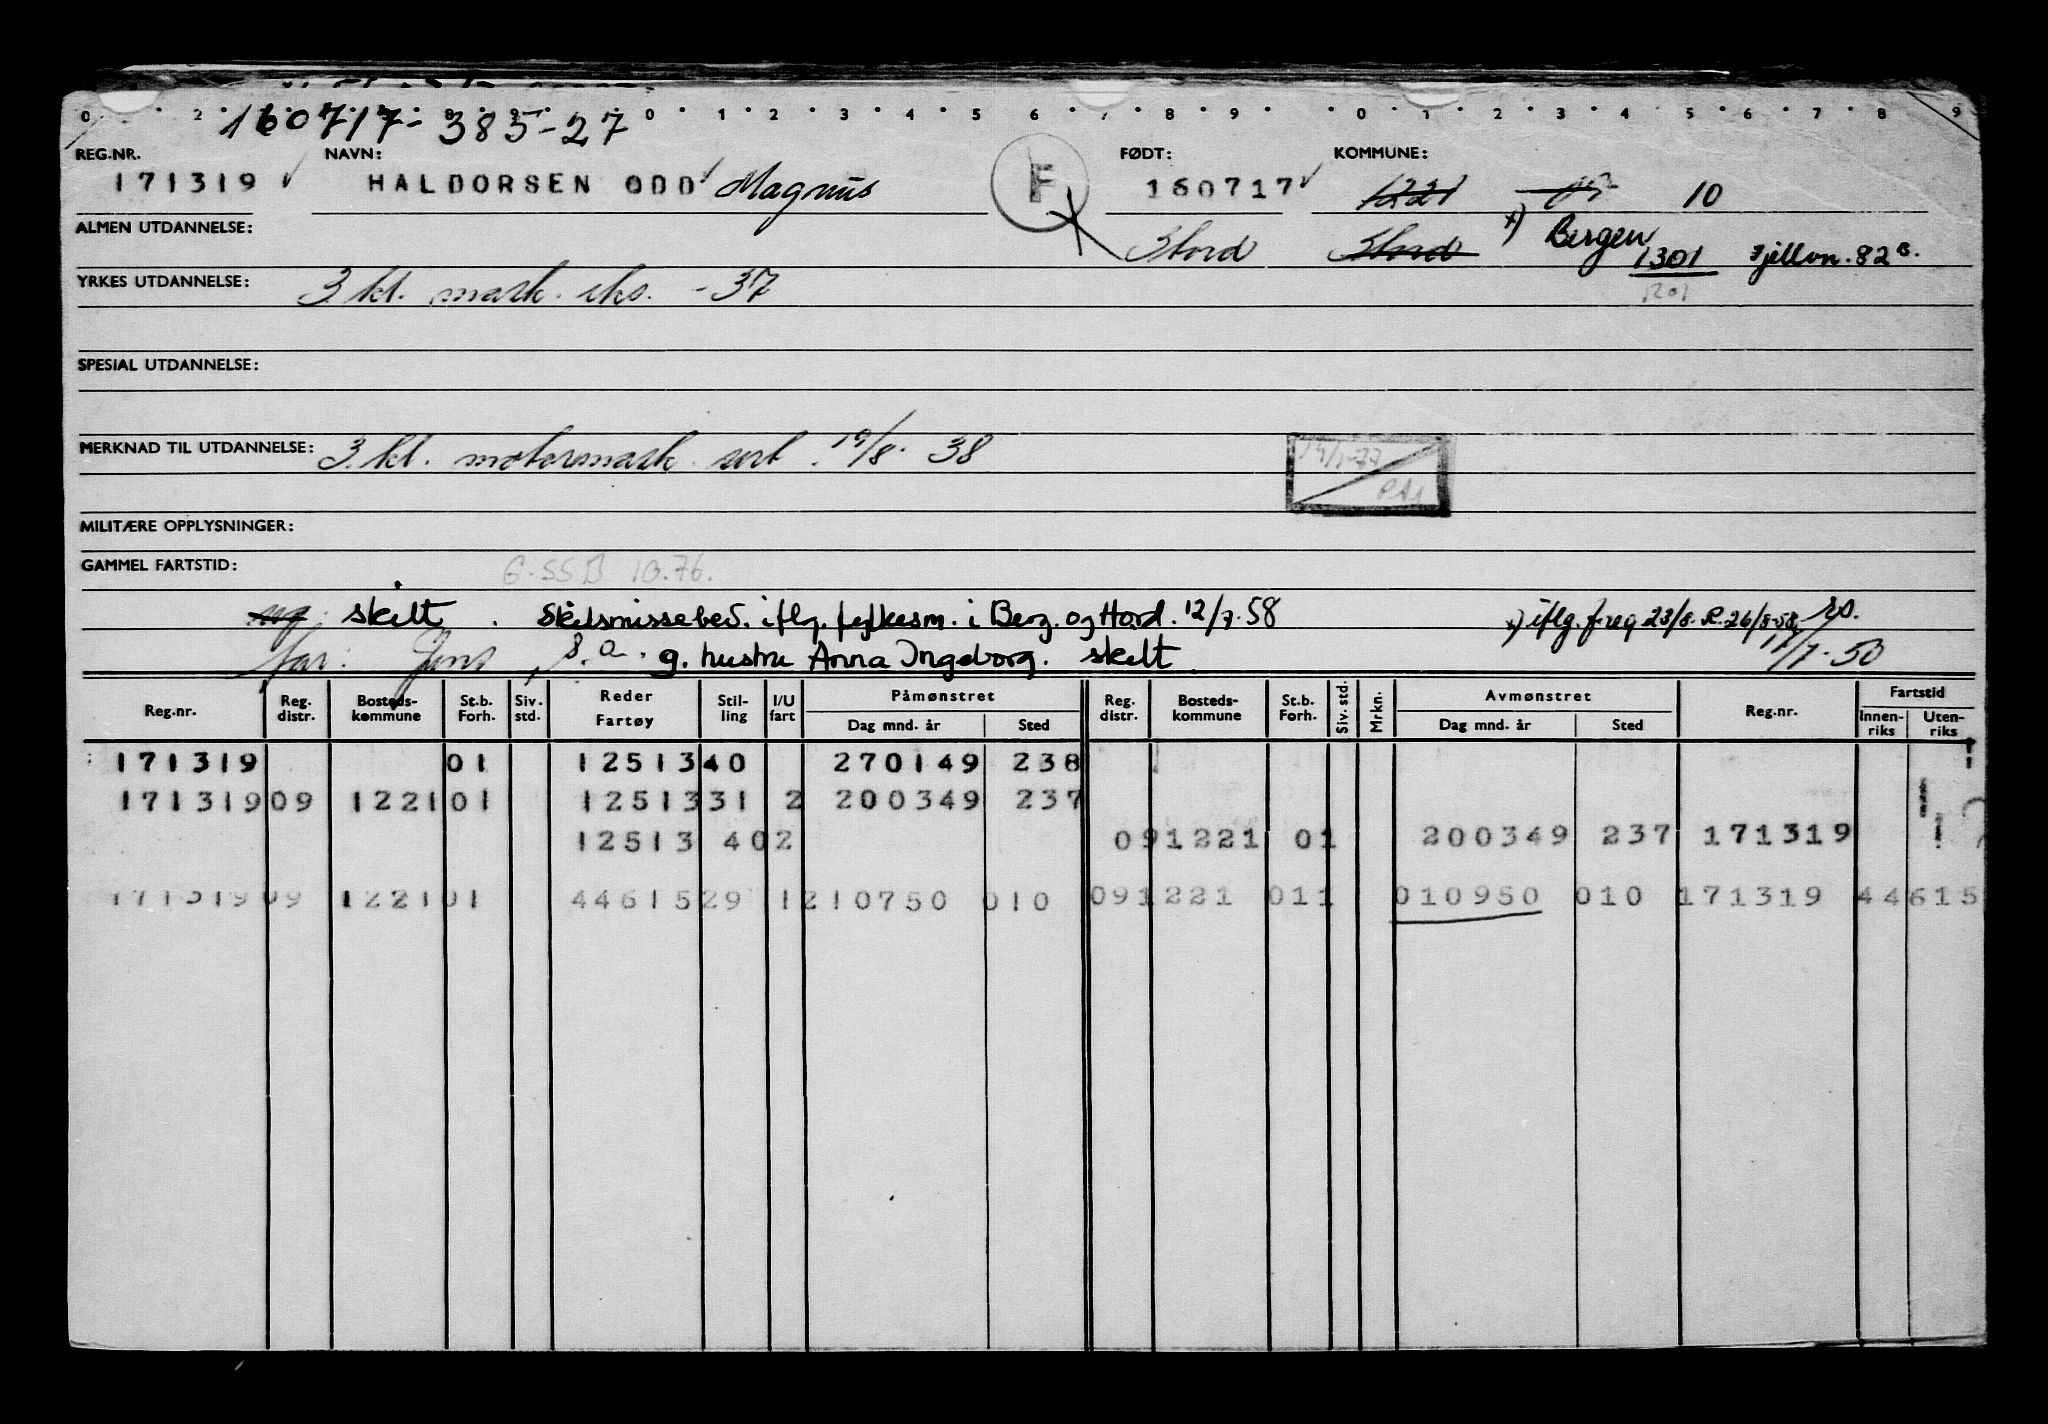 0 2 0 1 2 3 4 5 6 7 8 9 0 1 2 3 4 5 6 7 8 9
160717-385-27
REG.NR. NAVN: FØDT: KOMMUNE:
171319 HALDORSEN ODD Magnus F 160717 1221 10
ALMEN UTDANNELSE: Stord Stord x) Bergen
1301 Fjellvn. 82 B.
YRKES UTDANNELSE: 3 kl. mask. eks. -37
1201
SPESIAL UTDANNELSE:
MERKNAD TIL UTDANNELSE: 3 kl. motormask. sert. 19/8. 38
19/1-77
MILITÆRE OPPLYSNINGER:
GAMMEL FARTSTID: 10.76.
ug. skilt. Skilsmissebev. iflg. fylkesm. i Berg. og Hord. 12/7.58 x) iflg. f.reg 23/8. R. 26/8-58.
far: Jens, s.a. g. hustru Anna Ingeborg. skilt 11/7-50
Reg.nr. Reg. distr. Bosteds-kommune St.b. Forh. Siv. std. Reder Fartøy Stil-ling I/U fart Påmønstret Dag mnd. år Sted Reg. distr. Bosteds-kommune St.b. Forh. Siv. std. Mrkn. Avmønstret Dag mnd. år Sted Reg.nr. Fartstid Innen-riks Uten-riks
171319 01 12513 40 270149 238
171319 09 1221 01 12513 31 2 200349 237
12513 40 2 09 1221 01 200349 237 171319
171319 09 1221 01 44615 29 1 210750 010 09 1221 01 1 010950 010 171319 44615